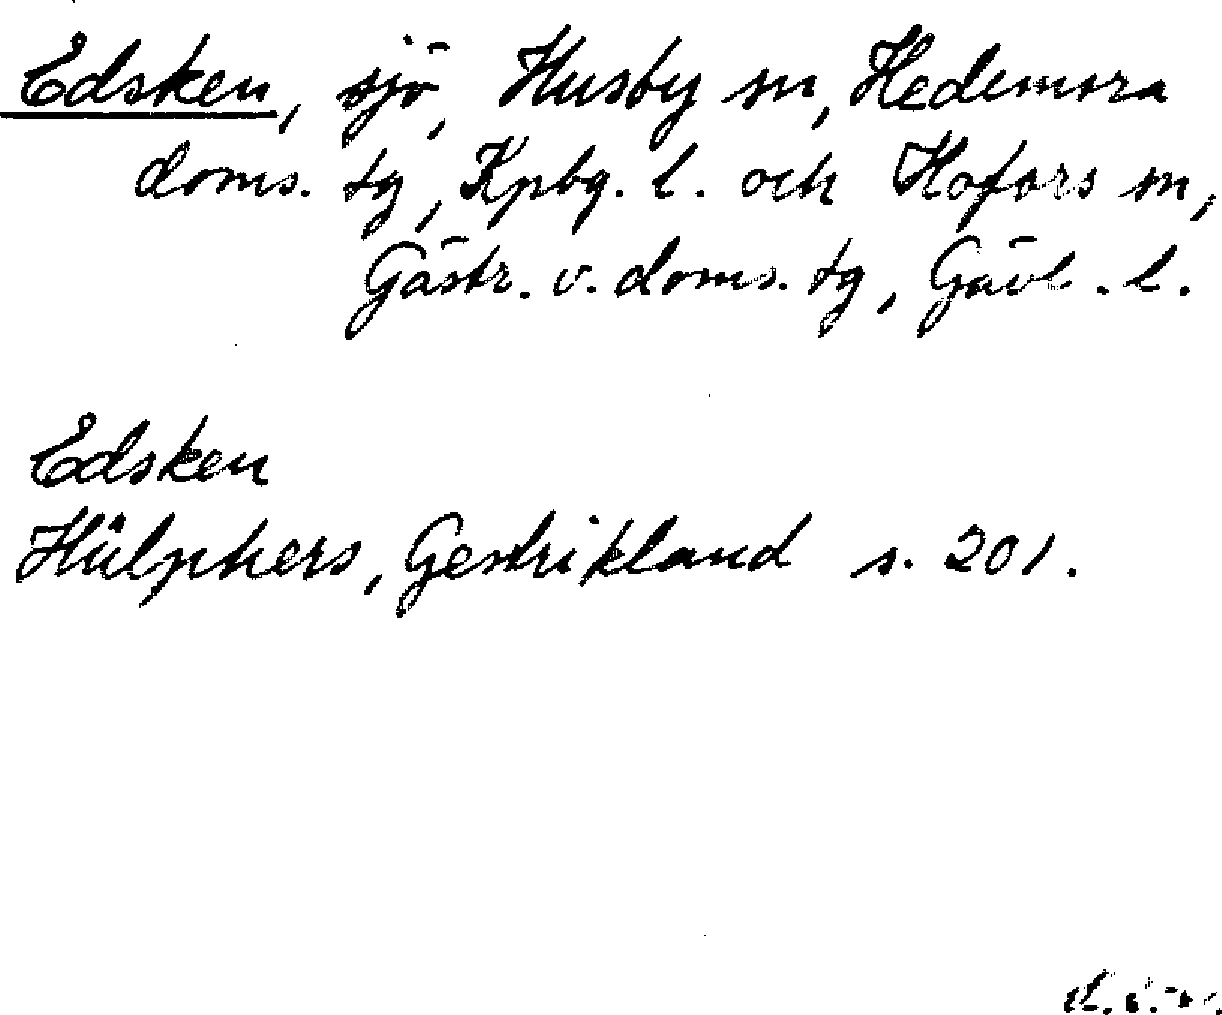 Edsken, sjö, Husby sn, Hedemora
doms. tg, Kpbg. l. och Hofors sn,
Gästr. v. doms. tg, Gävl. l.
Edsken
Hülphers, Gestrikland s. 201.